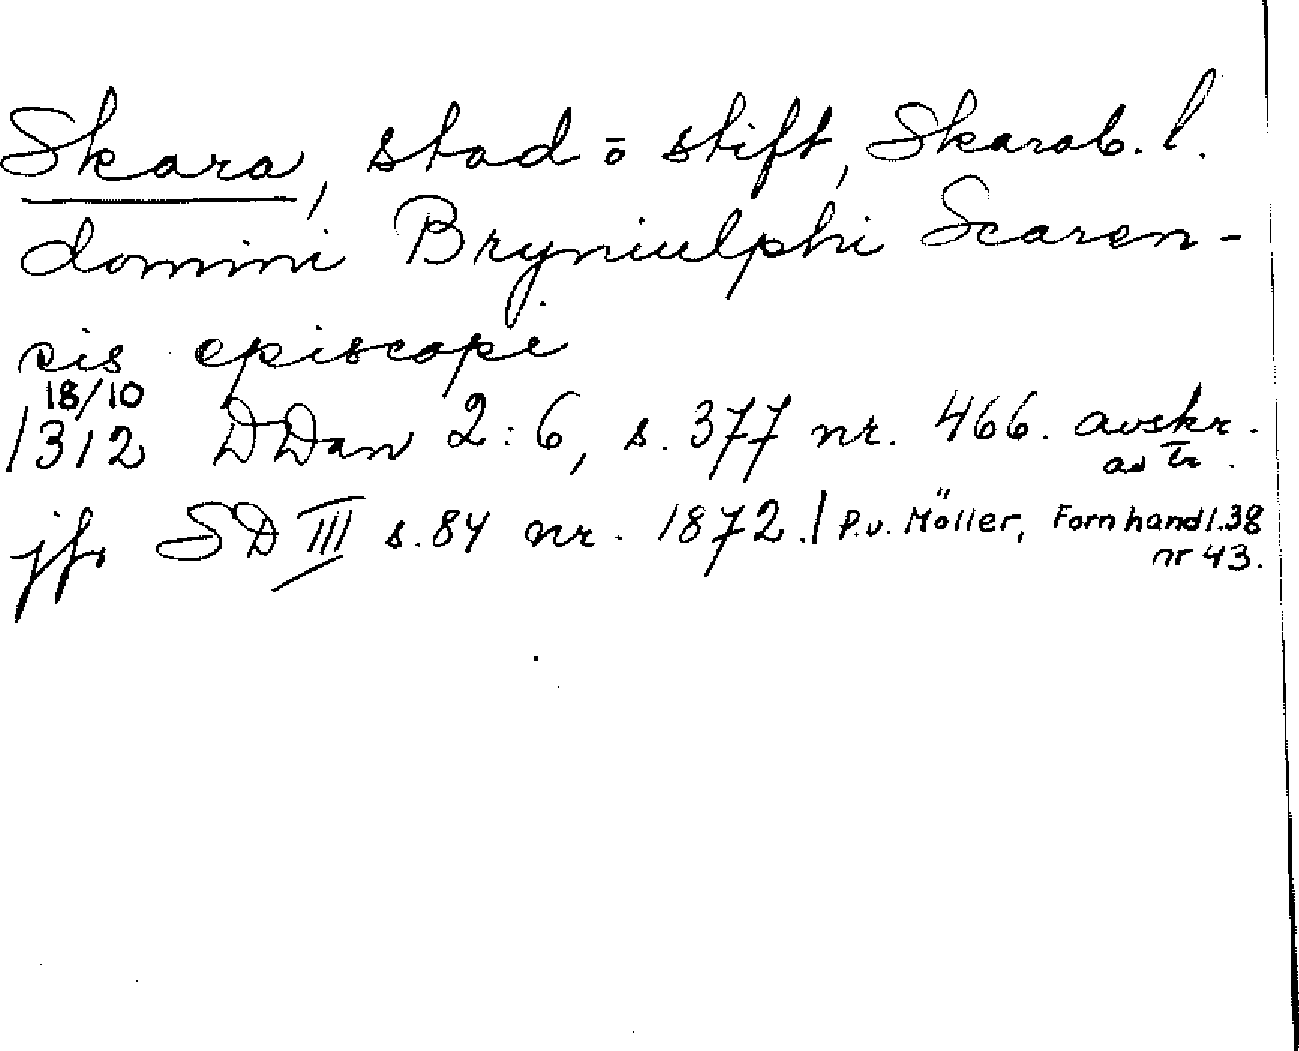 Skara, stad o stift, Skarab. l.
domini Bryniulphi Scaren-
sis episcopi
18/10
1312 DDan 2:6, s. 377 nr. 466. avskr.
av Tr.
jfr SD III s. 84 nr. 1872. / P.v. Möller, Fornhandl. 38
nr 43.